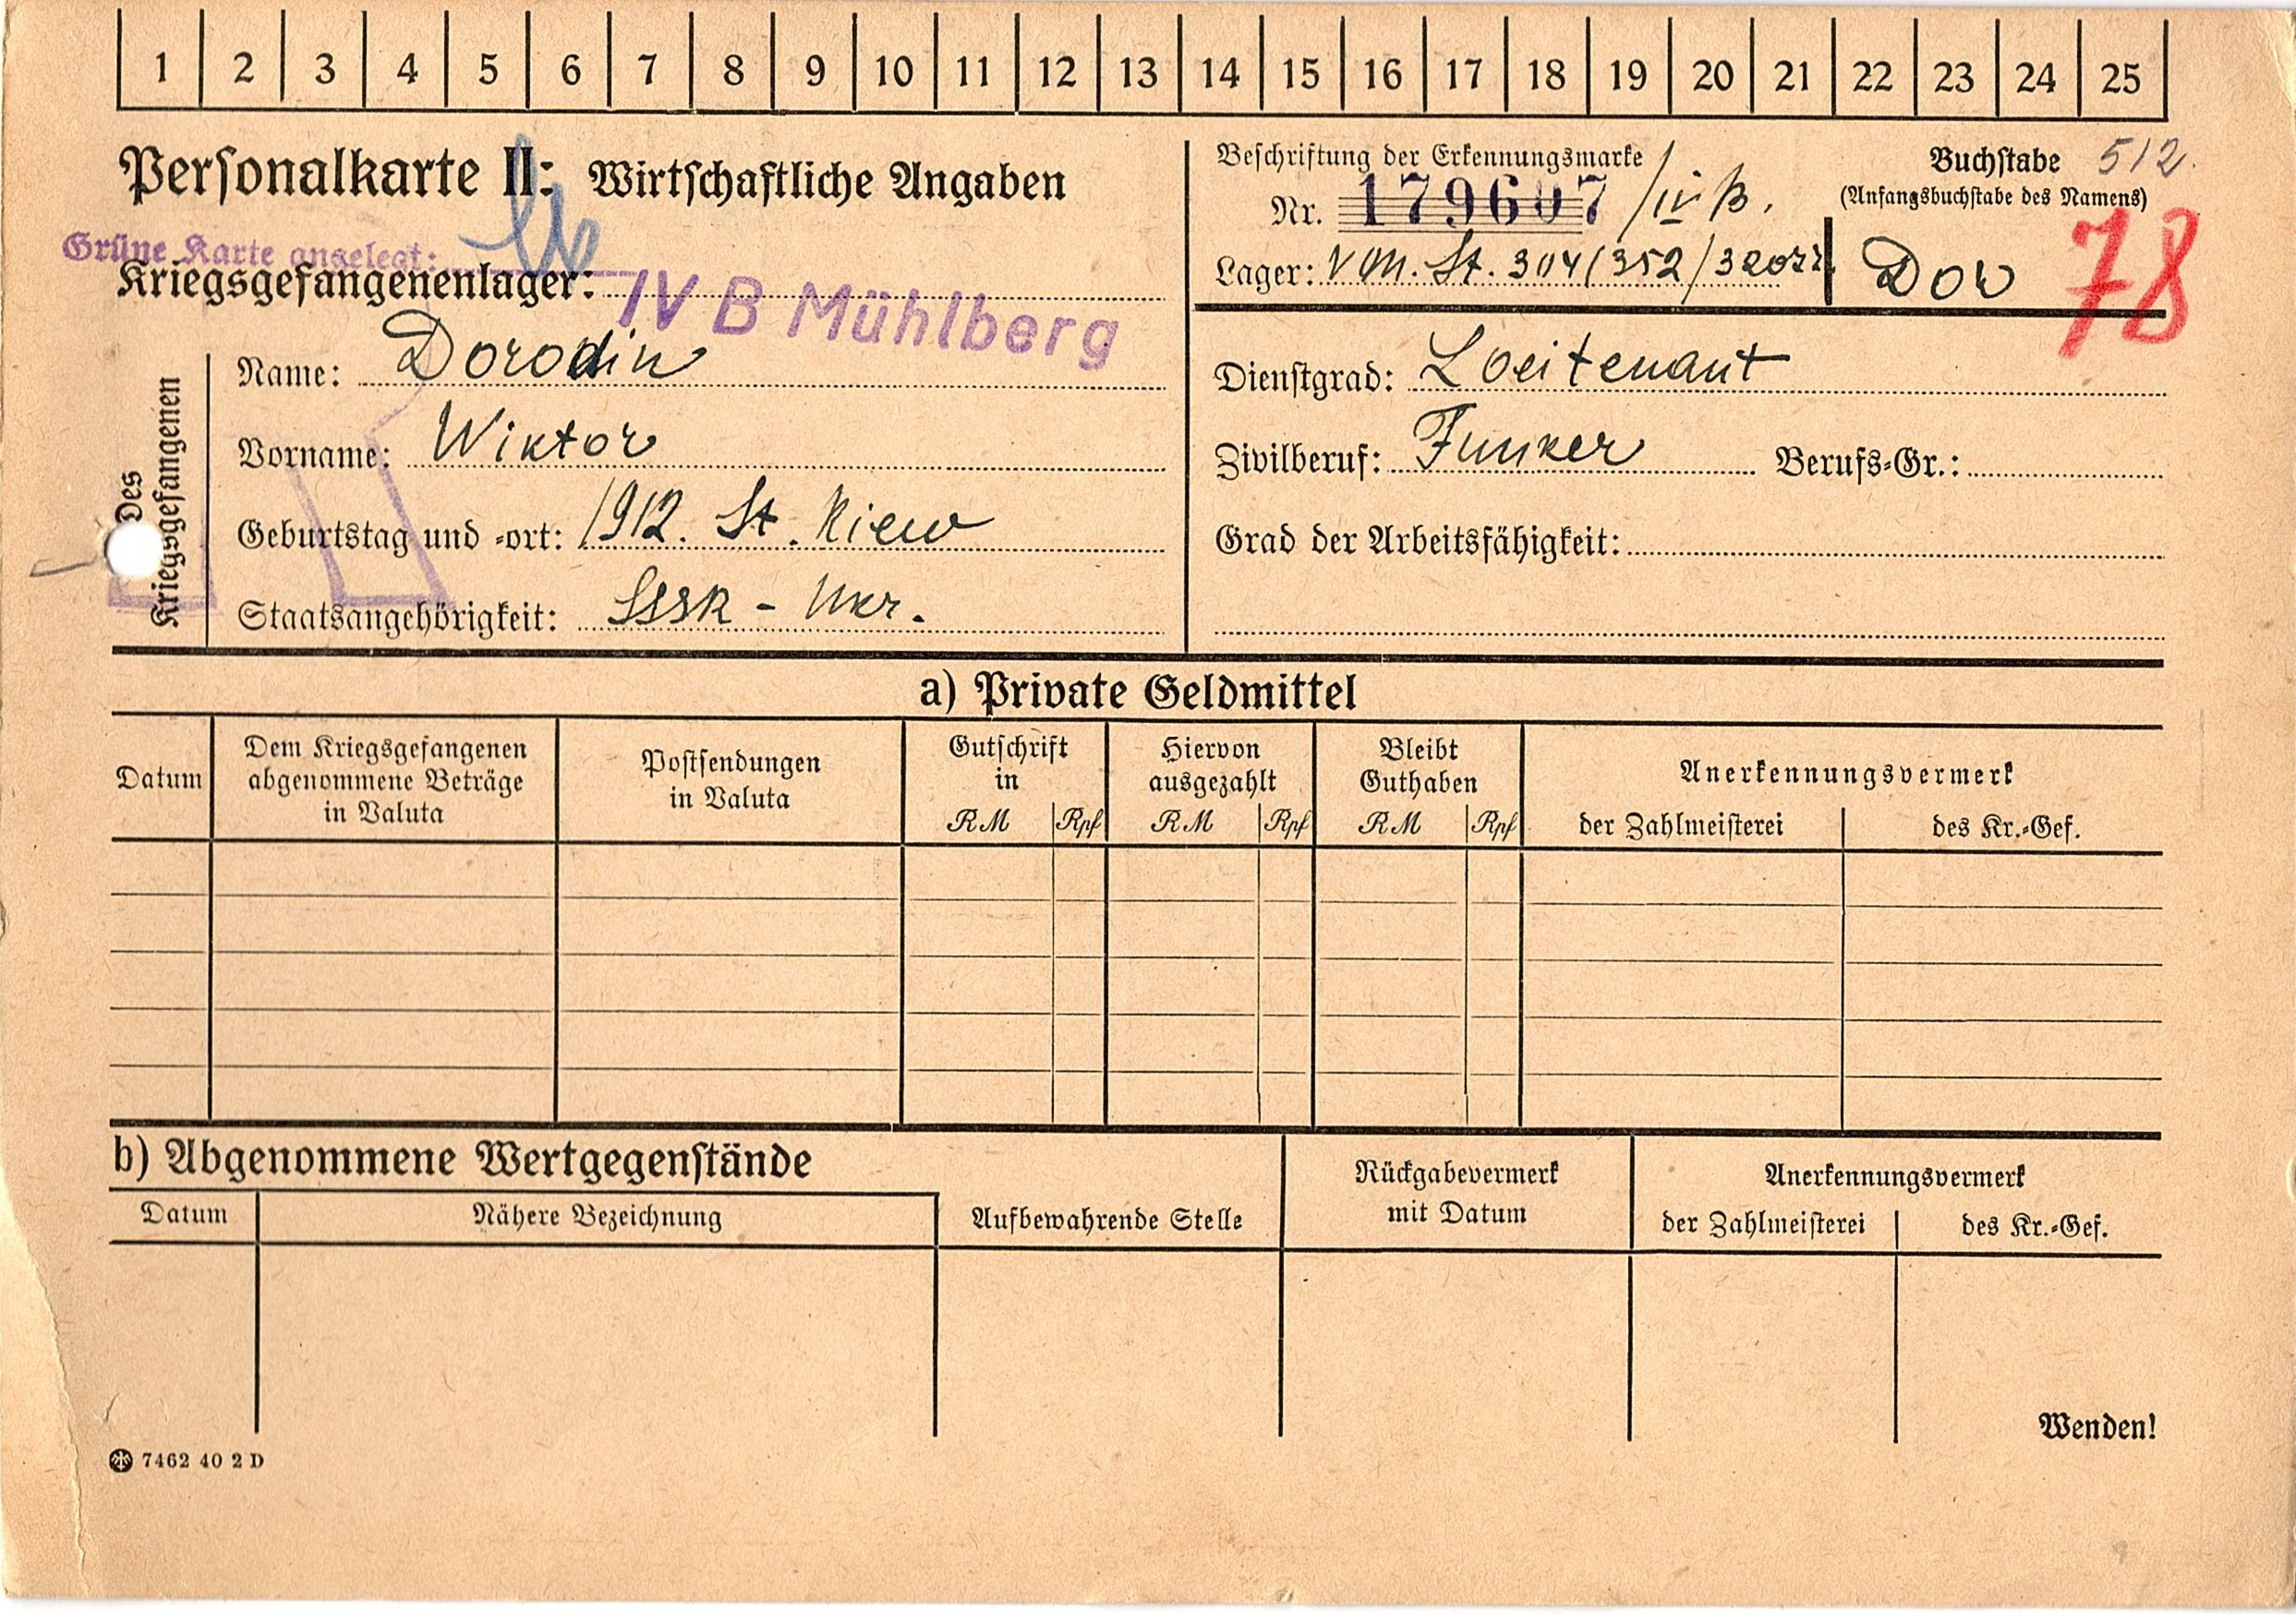 1 2 3 4 5 6 7 8 9 10 11 12 13 14 15 16 17 18 19 20 21 22 23 24 25
Personalkarte II: Wirtschaftliche Angaben
Grüne Karte angelegt:
Kriegsgefangenenlager: IV B Mühlberg
Beschriftung der Erkennungsmarke
Nr. 179607 / IV B.
Lager: V M. St. 304 (352 /
Buchstabe 512.
(Anfangsbuchstabe des Namens)
Dor 78
Des Kriegsgefangenen
Name: Dorodin
Vorname: Wiktor
Geburtstag und -ort: 1912. St. Kiew
Staatsangehörigkeit: SSSR - Ukr.
Dienstgrad: Loeitenant
Zivilberuf: Funker Berufs-Gr.:
Grad der Arbeitsfähigkeit:
a) Private Geldmittel
Datum
Dem Kriegsgefangenen
abgenommene Beträge
in Valuta
Postsendungen
in Valuta
Gutschrift
in
RM Rpf
Hiervon
ausgezahlt
RM Rpf
Bleibt
Guthaben
RM Rpf
Anerkennungsvermerk
der Zahlmeisterei des Kr.-Gef.
b) Abgenommene Wertgegenstände
Datum Nähere Bezeichnung
Aufbewahrende Stelle
Rückgabevermerk
mit Datum
Anerkennungsvermerk
der Zahlmeisterei des Kr.-Gef.
Wenden!
7462 40 2 D